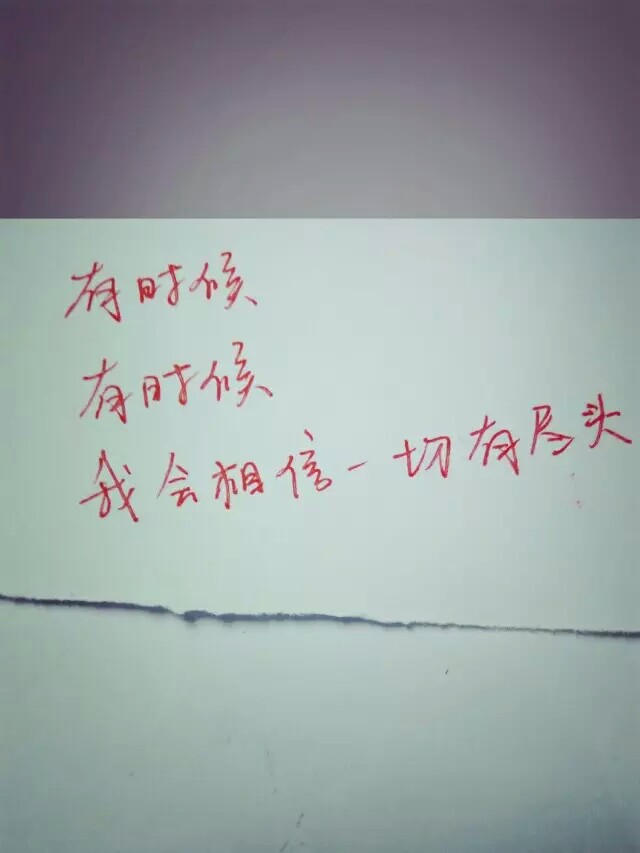 有时候
有时候
我会相信一切有尽头